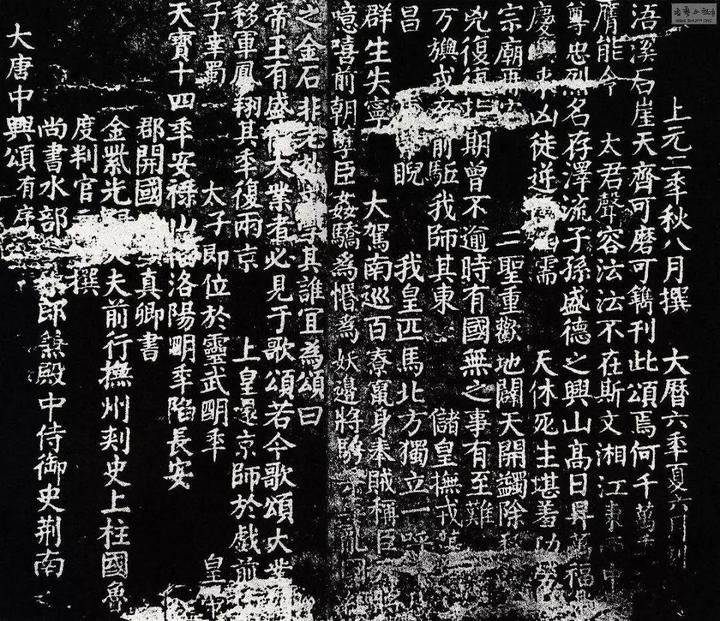 大唐中興頌有序
尚書水部郎兼殿中侍御史荊南
度判官撰
金紫光大夫前行撫州刺史上柱國魯
郡開國真卿書
天寶十四年安祿山洛陽明年陷長安
子幸蜀 太子即位於靈武明年 皇
移軍鳳翔其年復兩京 上皇還京師於戲前
帝王有盛大業者必見于歌頌若今歌頌大業
之金石非老學其誰宜為頌曰
噫嘻前朝孽臣姦驕為惛為妖邊將騁亂國
群生失寧 大駕南巡百寮竄身奉賊稱臣
昌睨 我皇匹馬北方獨立一呼
万旟戎卒前駈我師其東 儲皇撫戎
兇復復指期曾不逾時有國無之事有至難
宗廟再安 二聖重歡地闢天開蠲除
慶來凶徒逆濡 天休死生堪羞功勞
尊忠烈名存澤流子孫盛德之興山高日昇萬福
膺能令 大君聲容沄沄不在斯文湘江東中
浯溪石崖天齊可磨可鐫刊此頌焉何千萬
上元二年秋八月撰 大曆六年夏六月刻